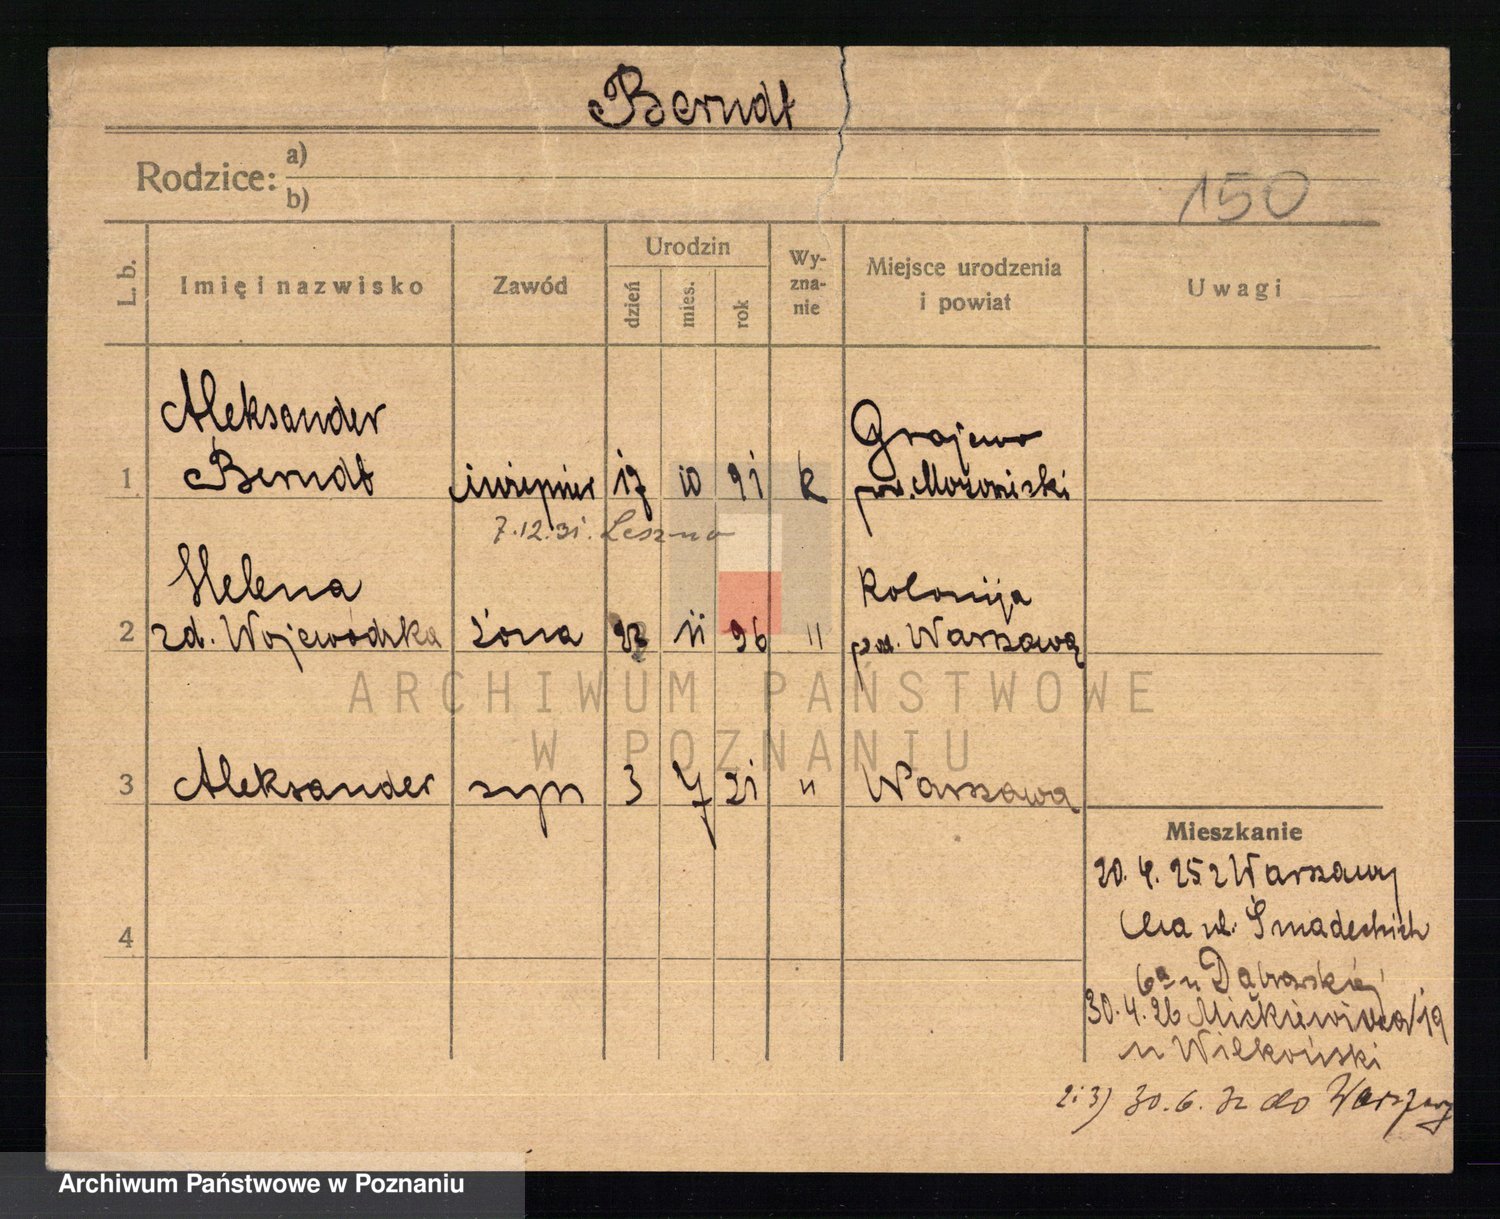 Berndt
Rodzice: a)
b)
150
L. b.
Imię i nazwisko
Zawód
Urodzin
dzień
mies.
rok
Wy-
zna-
nie
Miejsce urodzenia
i powiat
Uwagi
Aleksander
Grajewo
1 Berndt inżynier 17 10 91 k
7.12.31. Leszno
Helena Kolonija
2 zd. Wojewódzka żona 11 96 " pod. Warszawą
ARCHIWUM PAŃSTWOWE
W POZNANIU
3 Aleksander syn 3 7 21 " Warszawa
Mieszkanie
20. 4. 25 z Warszawy
ul. Śniadeckich
6a u Dąbrowskiej
4
30. 4. 26 Mickiewicza 19
u Wilkoński
2 i 3) 30. 6. 32 do Warszawy
Archiwum Państwowe w Poznaniu